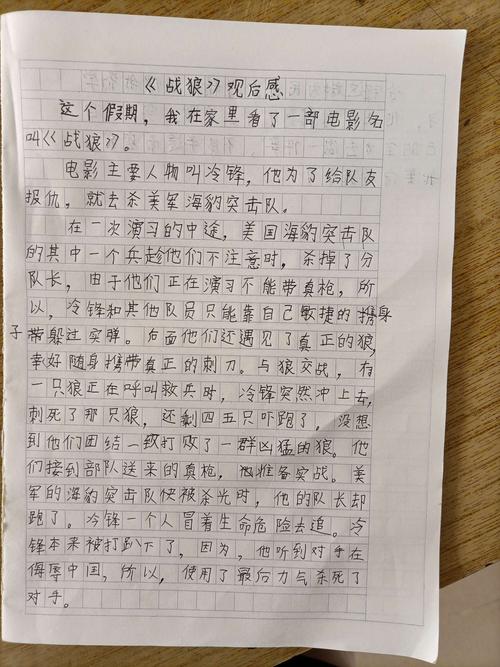 《战狼》观后感
这个假期，我在家里看了一部电影名
叫《战狼》。
电影主要人物叫冷锋，他为了给队友
报仇，就去杀美军海豹突击队。
在一次演习的中途，美国海豹突击队
的其中一个兵趁他们不注意时，杀掉了分
队长，由于他们正在演习不能带真枪，所
以，冷锋和其他队员只能靠自己敏捷的携身
子带躲过实弹。后面他们还遇见了真正的狼，
幸好随身携带真正的刺刀。与狼交战，有
一只狼正在呼叫救兵时，冷锋突然冲上去，
刺死了那只狼，还剩四五只吓跑了，没想
到他们团结一致打败了一群凶猛的狼。他
们接到部队送来的真枪，准备实战。美
军的海豹突击队快被杀光时，他的队长却
跑了。冷锋一个人冒着生命危险去追。冷
锋本来被打趴下了，因为，他听到对手在
侮辱中国，所以，使用了最后力气杀死了
对手。